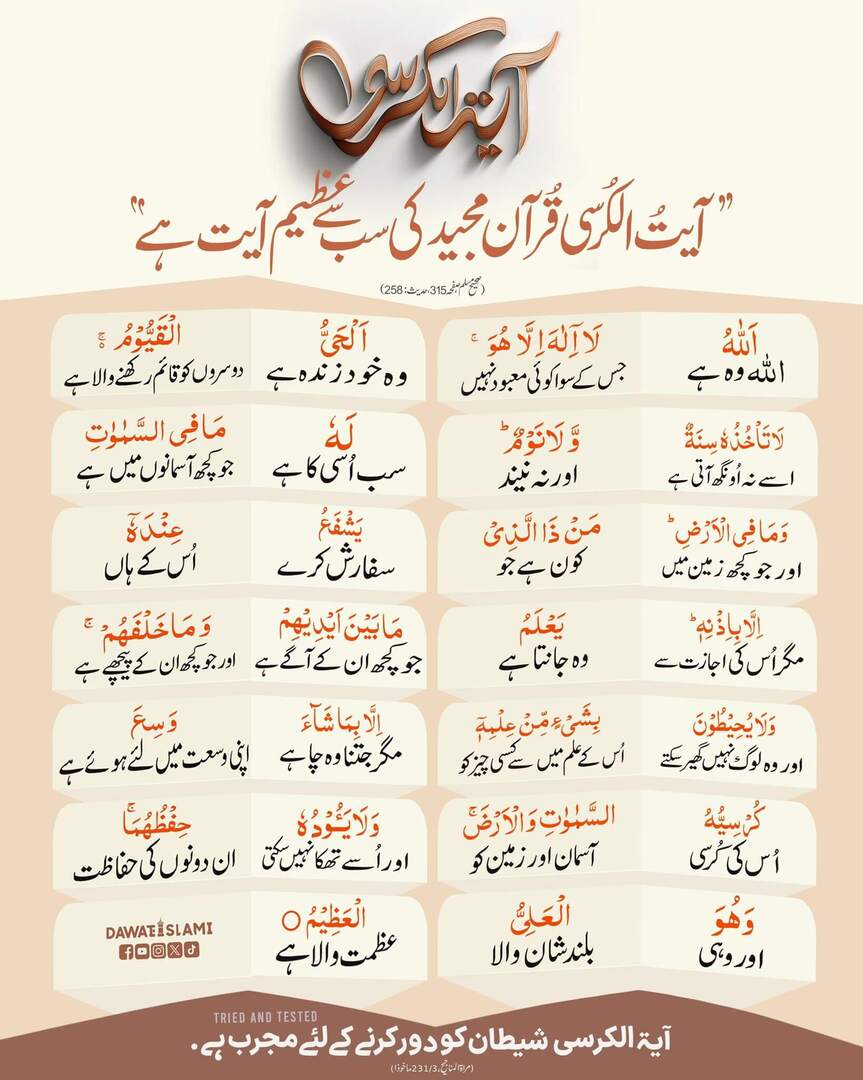 آیۃ الکرسی
”آیتُ الکُرسی قُرآن مجید کی سب سے عظیم آیت ہے“
(صحیح مسلم صفحہ 315، حدیث: 258)
اَللّٰهُ
اللہ وہ ہے
لَاۤ اِلٰهَ اِلَّا هُوَ ۚ
جس کے سوا کوئی معبود نہیں
اَلْحَیُّ
وہ خود زندہ ہے
الْقَیُّوْمُ ۚ۬
دوسروں کو قائم رکھنے والا ہے
لَا تَاْخُذُهٗ سِنَةٌ
اسے نہ اُونگھ آتی ہے
وَّ لَا نَوْمٌ ؕ
اور نہ نیند
لَهٗ
سب اُسی کا ہے
مَا فِی السَّمٰوٰتِ
جو کچھ آسمانوں میں ہے
وَ مَا فِی الْاَرْضِ ؕ
اور جو کچھ زمین میں
مَنْ ذَا الَّذِیْ
کون ہے جو
یَشْفَعُ
سفارش کرے
عِنْدَهٗۤ
اُس کے ہاں
اِلَّا بِاِذْنِهٖ ؕ
مگر اُس کی اجازت سے
یَعْلَمُ
وہ جانتا ہے
مَا بَیْنَ اَیْدِیْهِمْ
جو کچھ ان کے آگے ہے
وَ مَا خَلْفَهُمْ ۚ
اور جو کچھ ان کے پیچھے ہے
وَ لَا یُحِیْطُوْنَ
اور وہ لوگ نہیں گھیر سکتے
بِشَیْءٍ مِّنْ عِلْمِهٖۤ
اُس کے علم میں سے کسی چیز کو
اِلَّا بِمَا شَآءَ
مگر جتنا وہ چاہے
وَسِعَ
اپنی وسعت میں لئے ہوئے ہے
كُرْسِیُّهُ
اُس کی کُرسی
السَّمٰوٰتِ وَ الْاَرْضَ ۚ
آسمان اور زمین کو
وَ لَا یَـُٔوْدُهٗ
اور اُسے تھکا نہیں سکتی
حِفْظُهُمَا ۚ
ان دونوں کی حفاظت
وَ هُوَ
اور وہی
الْعَلِیُّ
بلند شان والا
الْعَظِیْمُ ○
عظمت والا ہے
DAWATEISLAMI
TRIED AND TESTED
آیۃ الکرسی شیطان کو دور کرنے کے لئے مجرب ہے۔
(مراۃ المناجیح، 231/3 ماخوذا)